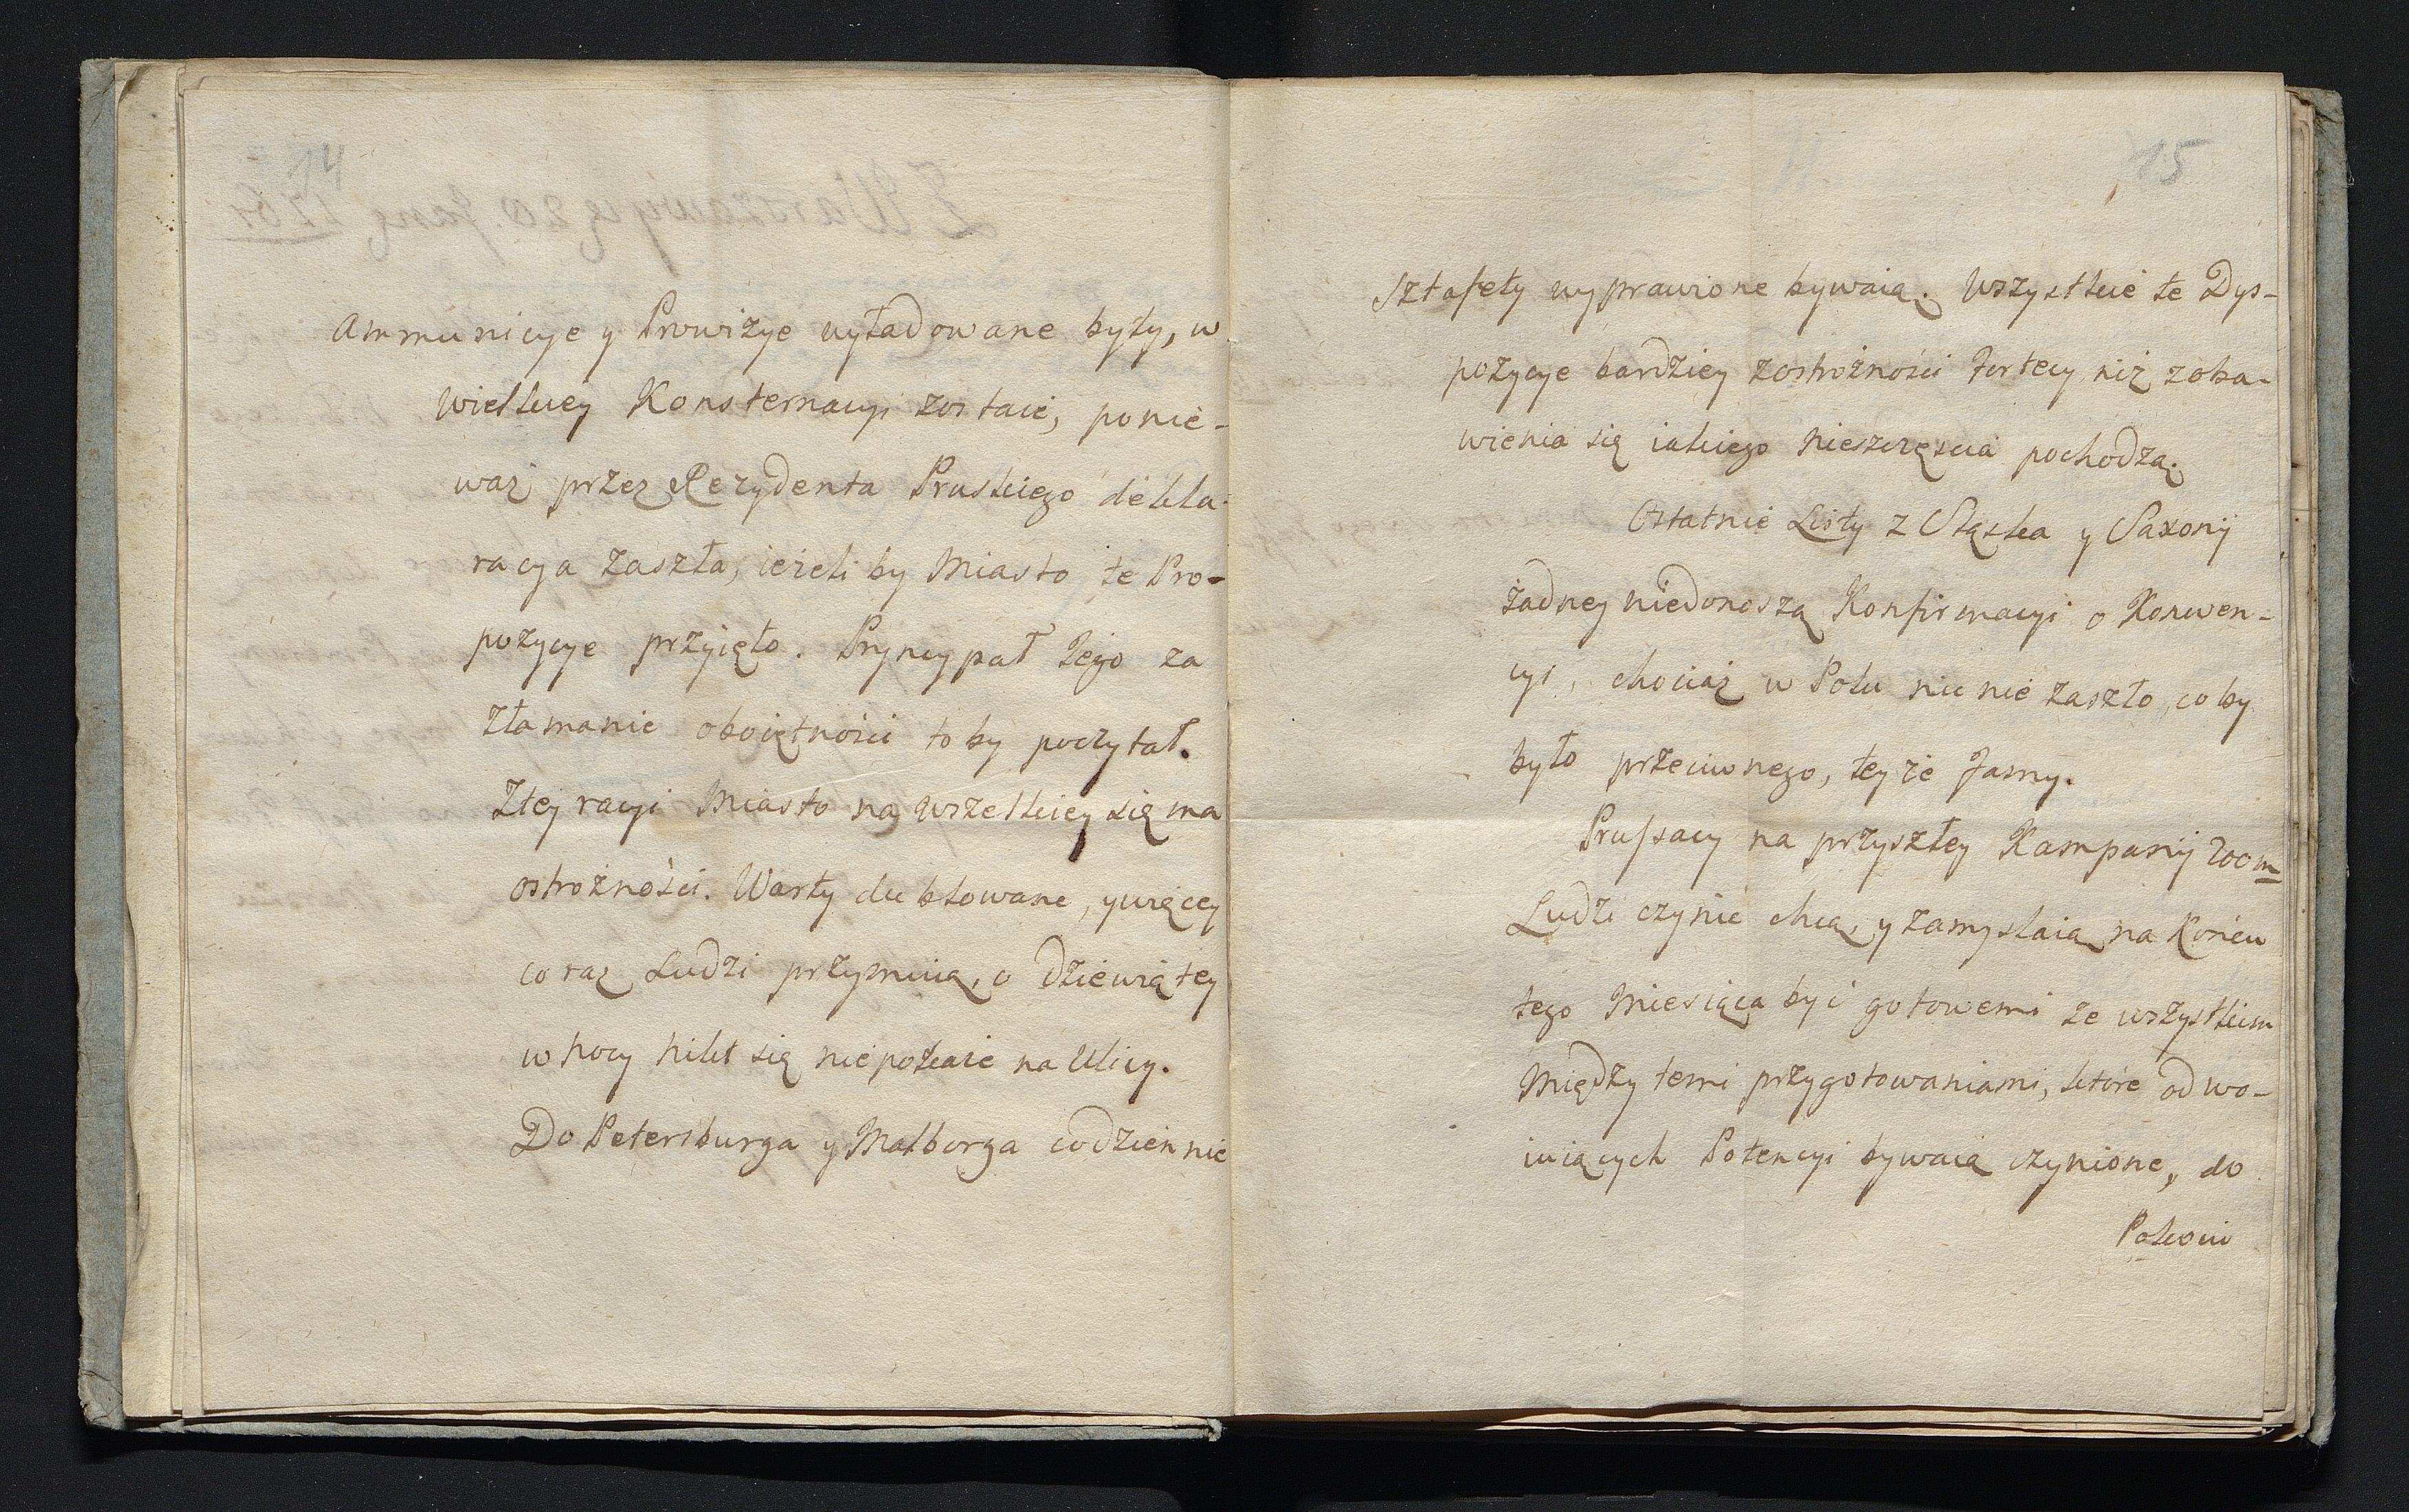 Ammunicye y Prowizye wyładowane były, w
wielkiey Konsternacyi zostaie, ponie-
waż przez Rezydenta Pruskiego dekla-
racya zaszła, ieżeli by Miasto te Pro-
pozycye przyięło. Pryncypał Jego za
złamanie oboiętności to by poczytał.
Ztej racyi Miasto na wszelkiey się ma
ostrożności. Warty dublowane, y więcey
co raz Ludzi przymuią, o dziewiątey
w nocy nikt się nie pokaże na Ulicy.
Do Petersburga y Malborga codziennie
15
Sztafety wyprawione bywaią. Wszystkie te Dys-
pozycye bardziey z ostrożności Fortecy niż z oba-
wienia się iakiego nieszczęscia pochodzą.
Ostatnie Listy z Sląska y Saxonij
żadney niedonoszą Konfirmacyi o Konwen-
cyi, chociaż w Polu nic nie zaszło, co by
było przeciwnego, teyże Famy.
Prussacy na przyszłey Kampanij 200m
Ludzi czynić chcą, y zamyslaią na Końcu
tego Miesiąca być gotowemi ze wszystkim
Między temi przygotowaniami, które od wo-
iuiących Potencyi bywaią czynione, do
Pokoiu